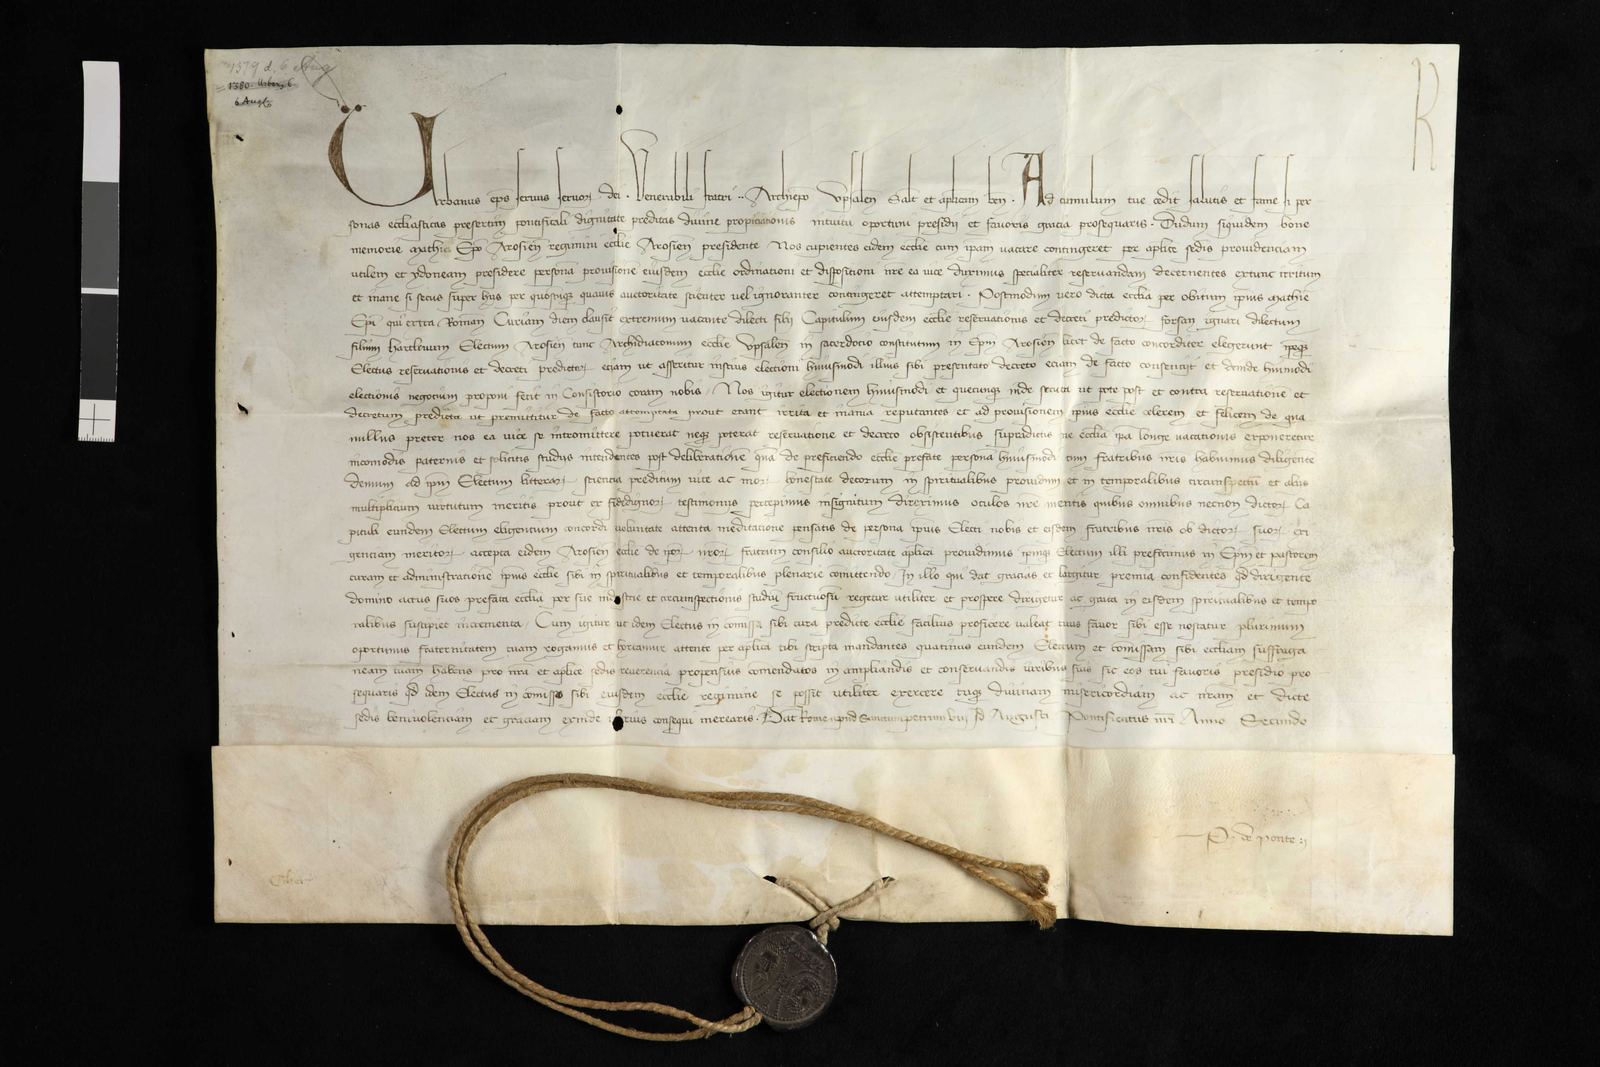 1379 d. 6 Aug
= 1380. Urban 6
6 Aug.
R
Urbanus eps servus servor dei . Venerabili fratri .. Archiepo Upsalen Salt et aplicam ben . Ad cumulum tue cedit salutis et fame si per
sonas ecclasticas presertim pontificali dignitate preditas divine propitiationis intuitu oportuni presidii et favoris gracia prosequaris . Dudum siquidem bone
memorie Mathia Epo Arosien regimini ecclie Arosien presidente Nos cupientes eidem ecclie cum ipam vacare contingeret per aplice sedis providenciam
utilem et ydoneam presidere personam provisione eiusdem ecclie ordinationi et dispositioni nre ea vice duximus specialiter reservandam decernentes extunc irritum
et inane si secus super hiis per quoscumqz quavis auctoritate scienter vel ignoranter contingeret attemptari . Postmodum vero dicta ecclia per obitum ipius Mathie
Epi qui extra Roman Curiam diem clausit extremum vacante dilecti filii Capitulum eiusdem ecclie reservationis et decreti predictor forsan ignari dilectum
filium Electum Arosien tunc Archidiaconum ecclie Upsalen in sacerdotio constitutum in Epm Arosien licet de facto concorditer elegerunt ipeqz
Electus reservationis et decreti predictor eciam ut asseritur inscius electioni huiusmodi illius sibi presentato decreto eciam de facto consensit et deinde huiusmodi
electionis negocium proponi fecit in Consistorio coram nobis / Nos igitur electionem huiusmodi et quecunqz inde secuta ut pote post et contra reservationem et
decretum predicta ut premittitur de facto attemptata prout erant irrita et inania reputantes et ad provisionem ipius ecclie celerem et felicem de qua
nullus preter nos ea vice se intromittere potuerat neqz poterat reservatione et decreto obsistentibus supradictis ne ecclia ipa longe vacationis exponeretur
incomodis paternis et solicitis studiis intendentes post deliberationem quam de preficiendo ecclie prefate personam huiusmodi cum fratribus nris habuimus diligentem
demum ad ipm Electum litterar scientia preditum vite ac mor honestate decorum in spiritualibus providum et in temporalibus circumspectum et aliis
multiplicium virtutum meritis prout ex fidedignor testimoniis percepimus insignitum direximus oculos nre mentis quibus omnibus necnon dictor Ca
pituli eundem Electum eligentium concordi voluntate attenta meditatione pensatis de persona ipius Electi nobis et eisdem fratribus nris ob dictor suor exi
genciam meritor accepta eidem Arosien ecclie de ipor nror fratrum consilio auctoritate aplica providimus ipmqz Electum illi prefecimus in Epm et pastorem
curam et administrationem ipius ecclie sibi in spiritualibus et temporalibus plenarie comittendo / In illo qui dat gracias et largitur premia confidentes qd dirigente
domino actus suos prefata ecclia per sue industrie et circumspectionis studium fructuosum regetur utiliter et prospere dirigetur ac grata in eisdem spiritualibus et tempo
ralibus suscipiet incrementa / Cum igitur ut idem Electus in comissa sibi cura predicte ecclie facilius proficere valeat tuus favor sibi esse noscatur plurimum
oportunus fraternitatem tuam rogamus et hortamur attente per aplica tibi scripta mandantes quatinus eundem Electum et comissam sibi ecclesiam suffraga
neam tuam habens pro nra et aplice sedis reverencia propensius comendatos in ampliandis et conservandis iuribus suis sic eos tui favoris presidio pro
sequaris qd idem Electus in comisso sibi eiusdem ecclie regimine se possit utiliter exercere tuqz divinam misericordiam ac nram et dicte
sedis benivolenciam et graciam exinde uberius consequi merearis . Dat Rome apud Sanctumpetrum viii Id Augusti Pontificatus nri Anno Secundo
P. de ponte